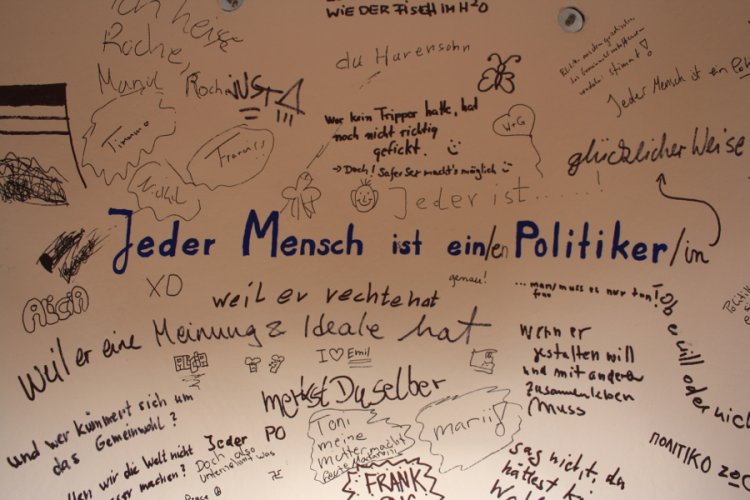 WIE DER FISCH IM H²O
Ich heiße
Roche,
du Hurensohn
Manül
Roch
JUST
Jeder Mensch ist ein
Wer kein Tripper hatte, hat
noch nicht richtig
gefickt.
→ Doch! Safer Sex macht's möglich
V+G
Timmo
Francis
glücklicher Weise
Jeder ist ......!
Jeder Mensch ist ein/en Politiker/in
XD
genau!
AliciA
weil er rechte hat
... man/muss es nur tun!
frau
weil er eine Meinung & Ideale hat
Ob er will oder nicht
I ♡ Emil
wenn er
gestalten will
und mit anderen
zusammenleben
muss
merkst Du selber
und wer kümmert sich um
das Gemeinwohl?
Jeder
PO
Toni
meine
mutter macht
mariij
ΠΟΛΙΤΙΚΟ
wir die Welt nicht
machen?
Doch, also
was
sag nicht, du
hättest
FRANK